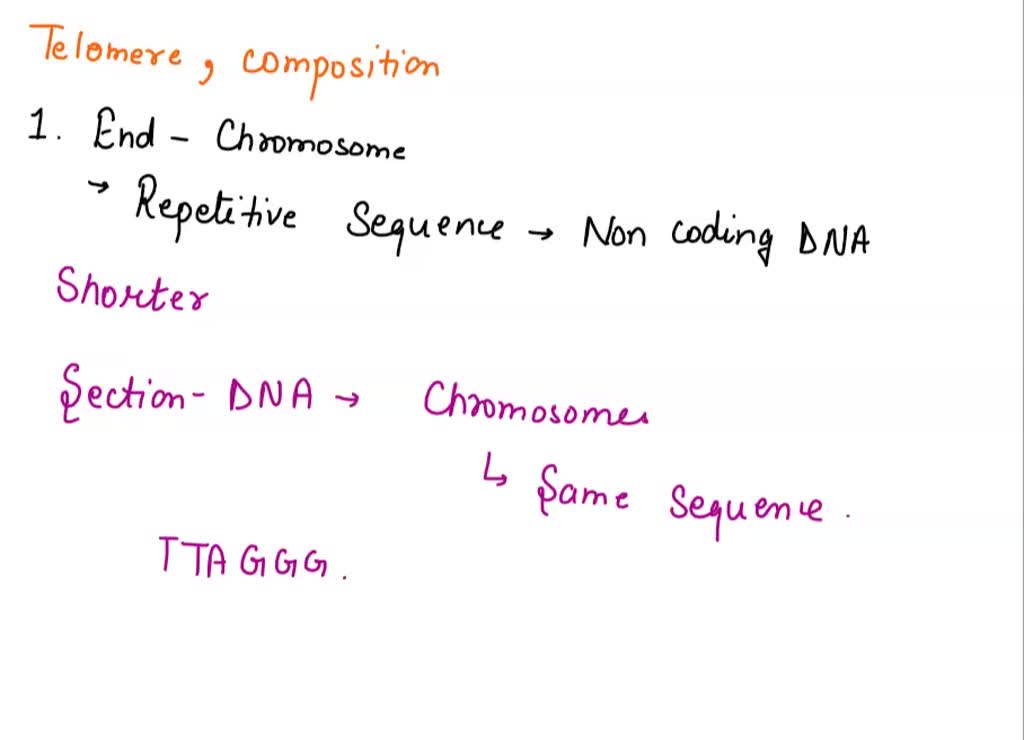 Telomere, composition
1. End - Chromosome
→ Repetitive Sequence → Non coding DNA
Shorter
Section - DNA → Chromosomes
↳ Same sequence.
TTAGGG.